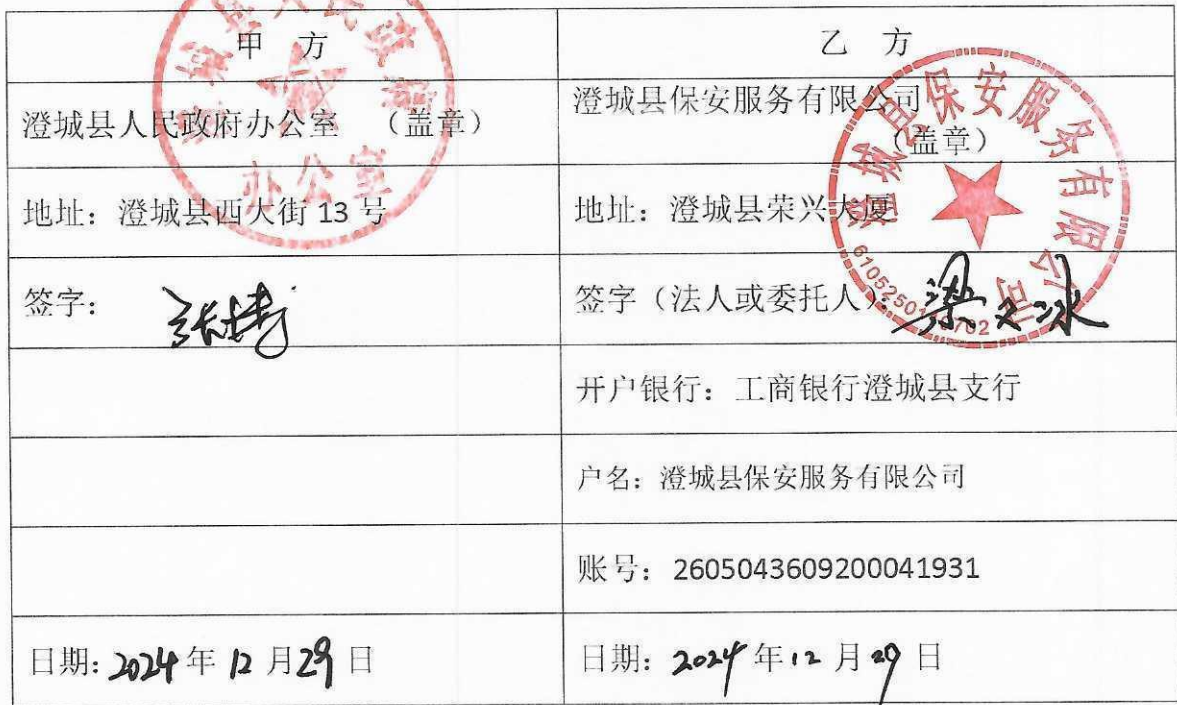 甲 方
乙 方
澄城县人民政府办公室 （盖章）
澄城县保安服务有限公司
（盖章）
地址：澄城县西大街 13 号
地址：澄城县荣兴大厦
签字：
签字（法人或委托人）：
开户银行：工商银行澄城县支行
户名：澄城县保安服务有限公司
账号：2605043609200041931
日期：2024 年 12 月 29 日
日期：2024 年 12 月 29 日
办公室
澄城县保安服务有限公司